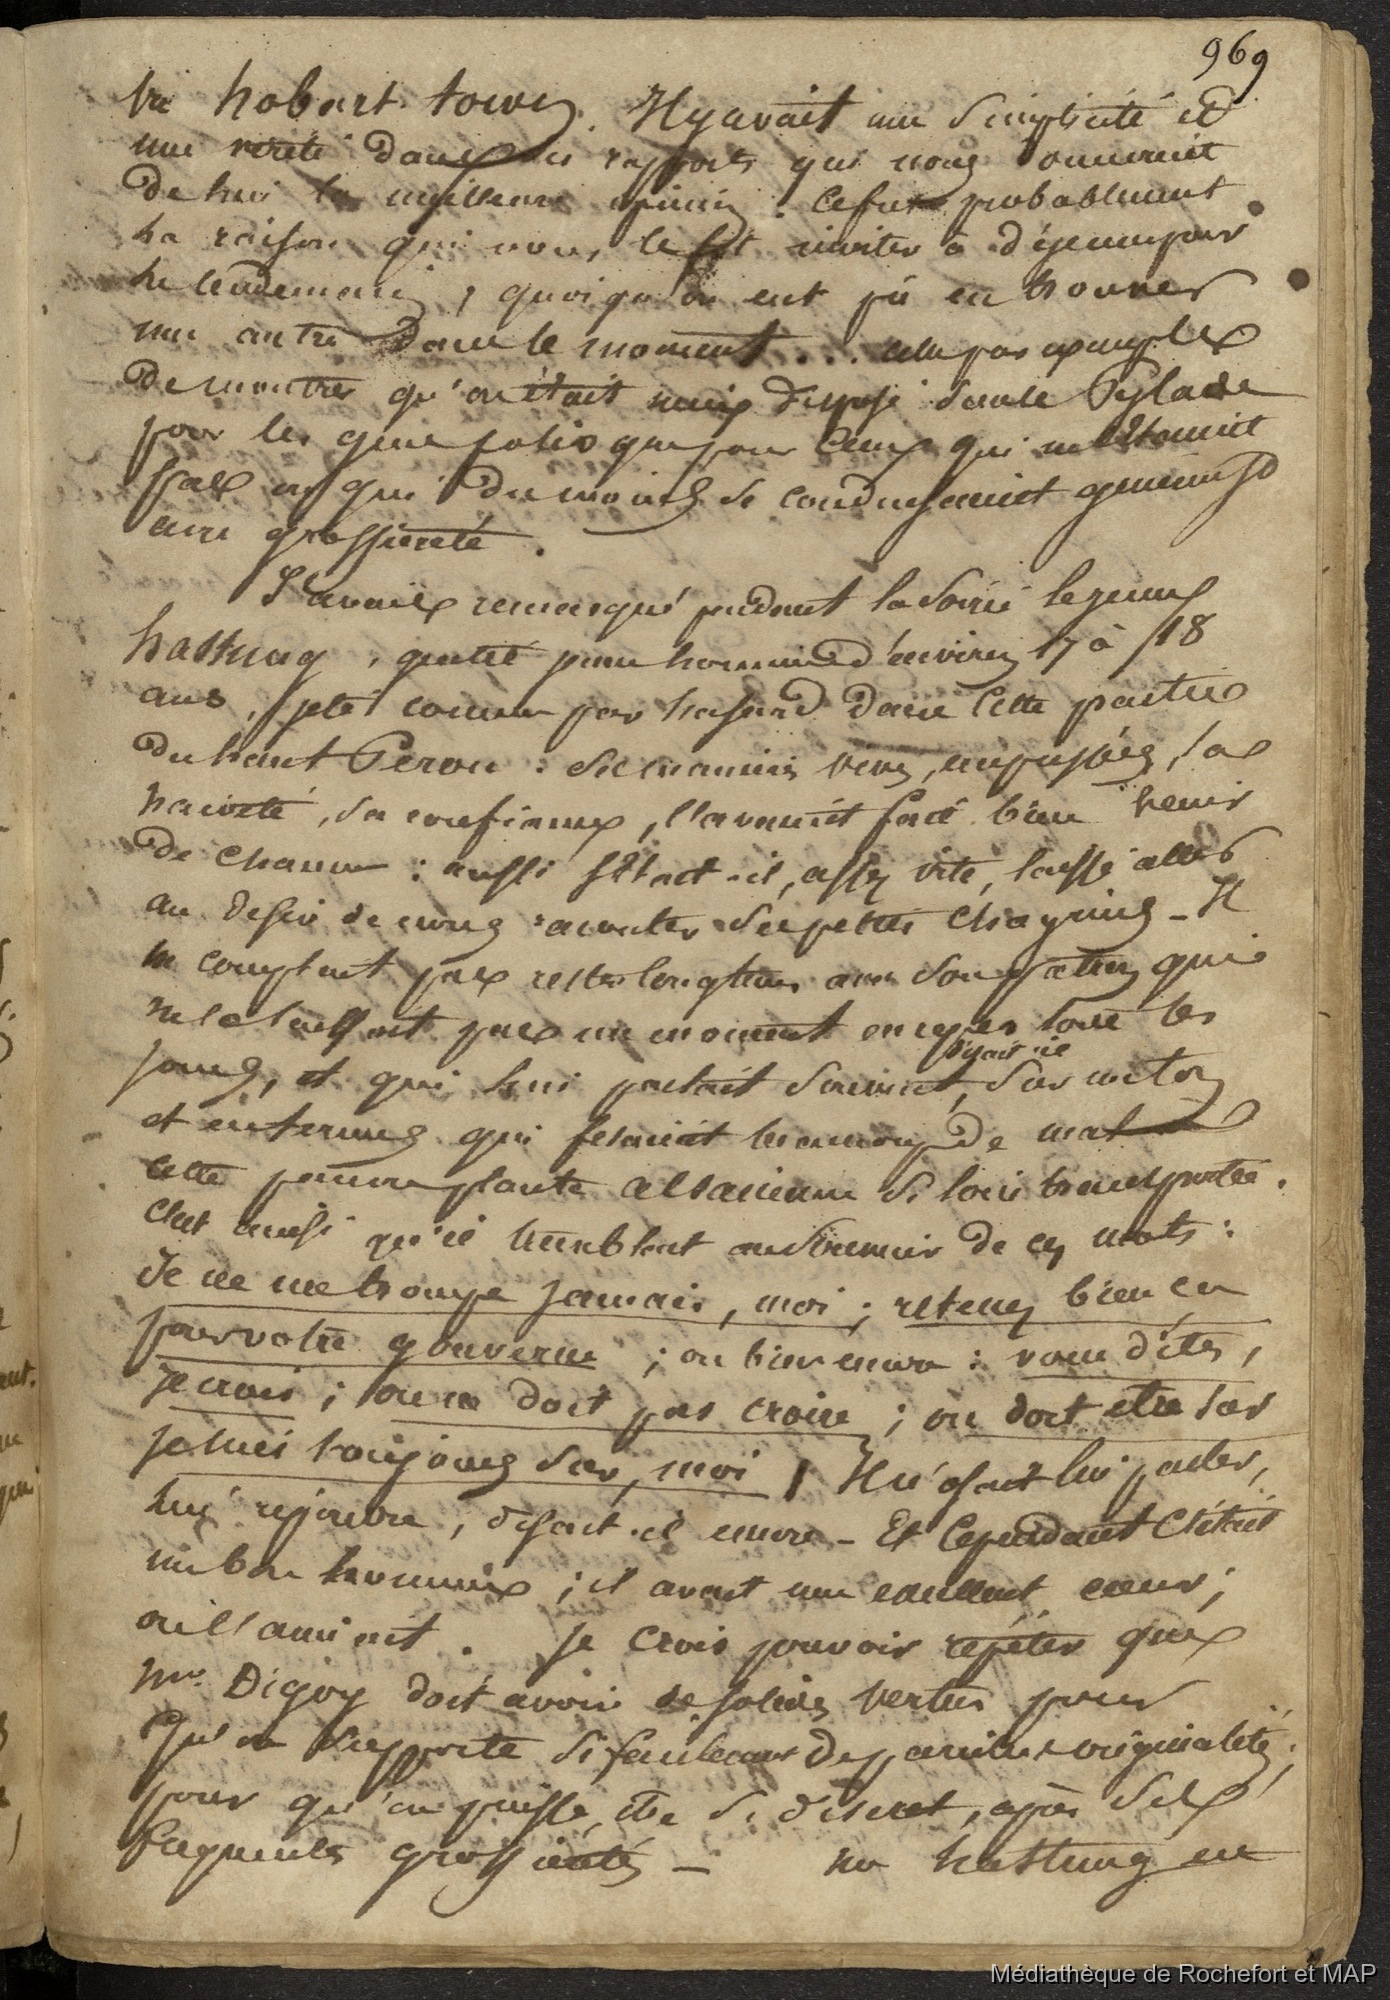 969
hobart town. Il y avait une simplicité et
une vérité dans ses rapports qui nous donnèrent
de lui la meilleure opinion : ce fut probablement
la raison qui nous le fit inviter à déjeuner pour
le lendemain, quoiqu'on eut pû en trouver
une autre dans le moment ... cela par exemple
de montrer qu'on était mieux disposé dans le Pylade
pour les gens polis que pour ceux qui ne l'étaient
pas ou qui du moins se conduisaient
avec grossiereté.
J'avais remarqué pendant la soirée le jeune
hattung, gentil jeune homme d'environ 17 à 18
ans, jeté comme par hasard dans cette partie
du haut Perou : ses manières vives, empressées, sa
naiveté, sa confiance, l'avaient fait bien venir
de chacun : aussi s'était-il, assez vite, laissé aller
au desir de nous raconter ses petits chagrins - Il
ne comptait pas rester longtems avec son patron qui
ne le laissait pas un moment en repos tous les
jours, et qui lui parlait souvent, disait-il sur un ton
et en termes qui fesaient beaucoup de mal à
cette pauvre plante alsacienne si loin transportée.
C'est ainsi qu'il tremblait au souvenir de ces mots :
Je ne me trompe jamais, moi ; retenez bien ça
pour votre gouverne ; ou bien encore : vous dites,
je crois ; on ne doit pas croire ; on doit être sur
je suis toujours sur, moi ! Il n'osait lui parler,
lui répondre, disait-il encore - Et cependant c'était
un bon homme ; il avait un excellent cœur ;
on l'aimait. Je crois pouvoir repéter que
Mr. Digoy doit avoir de solides vertus pour
qu'on supporte si facilement de pareilles originalités,
pour qu'on puisse être si discret, après de si
fréquentes grossieretés - Mr hattung en